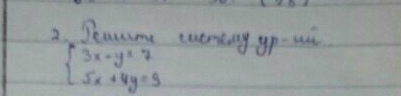 2. Решите систему ур-ий.
3x - y = 7
5x + 4y = 9